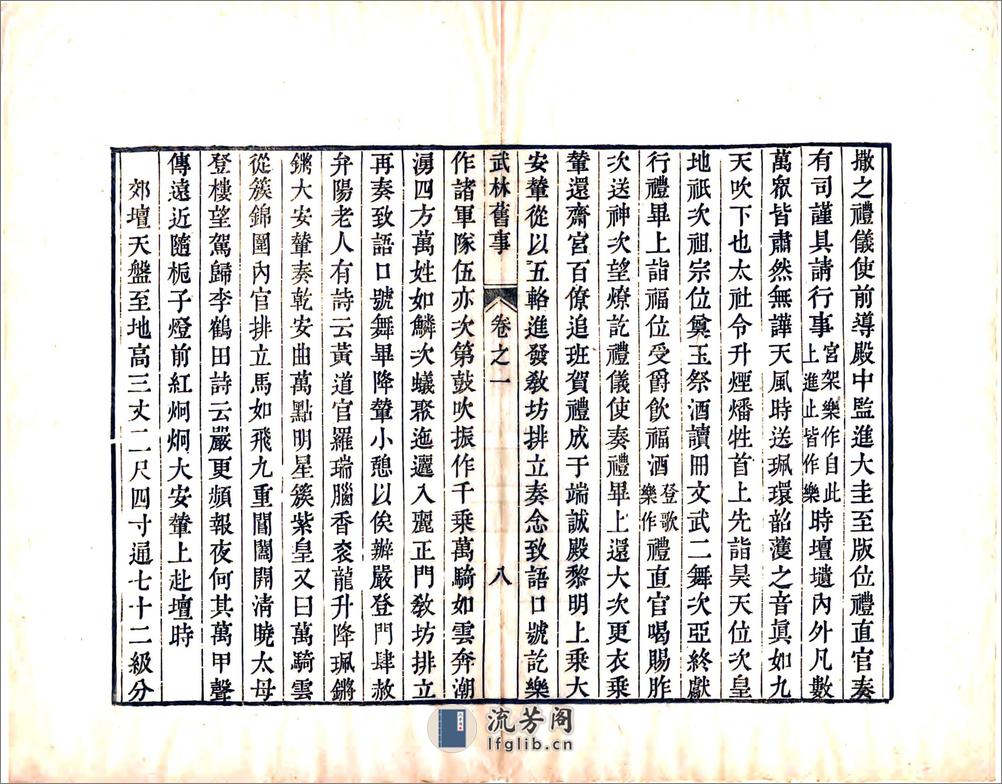 撒之禮儀使前導殿中監進大圭至版位禮直官奏
有司謹具請行事宮架樂作自此上進止皆作樂時壇壝內外凡數
萬眾皆肅然無譁天風時送珮環韶濩之音眞如九
天吹下也太社令升煙燔牲首上先詣昊天位次皇
地祇次祖宗位奠玉祭酒讀冊文武二舞次亞終獻
行禮畢上詣福位受爵飲福酒登歌樂作禮直官喝賜胙
次送神次望燎訖禮儀使奏禮畢上還大次更衣乘
輦還齋宮百僚追班賀禮成于端誠殿黎明上乘大
安輦從以五輅進發敎坊排立奏念致語口號訖樂
武林舊事 卷之一 八
作諸軍隊伍亦次第鼓吹振作千乘萬騎如雲奔潮
湧四方萬姓如鱗次蟻聚迤邐入麗正門敎坊排立
再奏致語口號舞畢降輦小憩以俟辦嚴登門肆赦
弁陽老人有詩云黃道官羅瑞腦香袞龍升降珮鏘
鏘大安輦奏乾安曲萬點明星簇紫皇又曰萬騎雲
從簇錦圍內官排立馬如飛九重閶闔開清曉太母
登樓望駕歸李鶴田詩云嚴更頻報夜何其萬甲聲
傳遠近隨梔子燈前紅炯炯大安輦上赴壇時
郊壇天盤至地高三丈二尺四寸通七十二級分
流芳阁
lfglib.cn